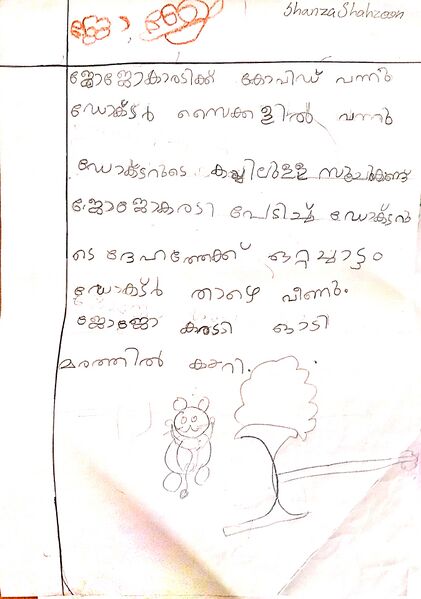 Shanza Shahzeen
ജോജോകാരടിക്ക് കോപിഡ് വന്നു
ഡോക്ടർ സൈക്കളിൽ വന്നു
ഡോക്ടറുടെ കയ്യിലുള്ള സൂചികണ്ട്
ജോജോകരടി പേടിച്ച് ഡോക്ടറു
ടെ ദേഹത്തേക്ക് ഒറ്റച്ചാട്ടം
ഡോക്ട്ർ താഴെ വീണു.
ജോജോ കരടി ഓടി
മരത്തിൽ കയറി.